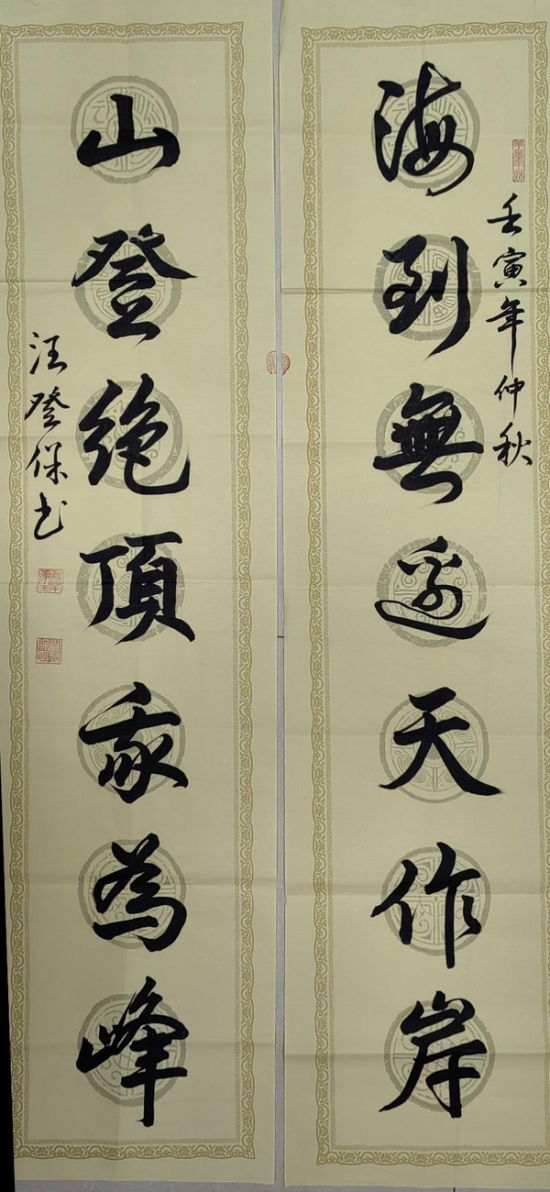 海到無邊天作岸
壬寅年仲秋
山登絶頂我為峰
汪登保书